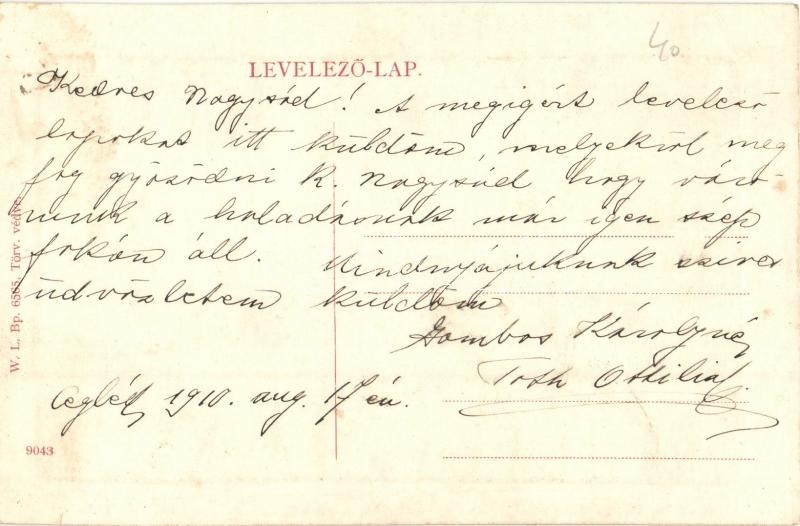 40
LEVELEZŐ-LAP.
Kedves Nagysád! A megigért levelező
lapokat itt küldöm, melyekről meg
fog győződni k. Nagysád hogy váro-
sunk a haladásnak már igen szép
fokán áll. Mindnyájuknak szives
üdvözletem küldöm
Gombos Károlyné
Toth Ottilia
Cegléd, 1910. aug. 17 én.
W. L. Bp. 6505. Törv. védve.
9043